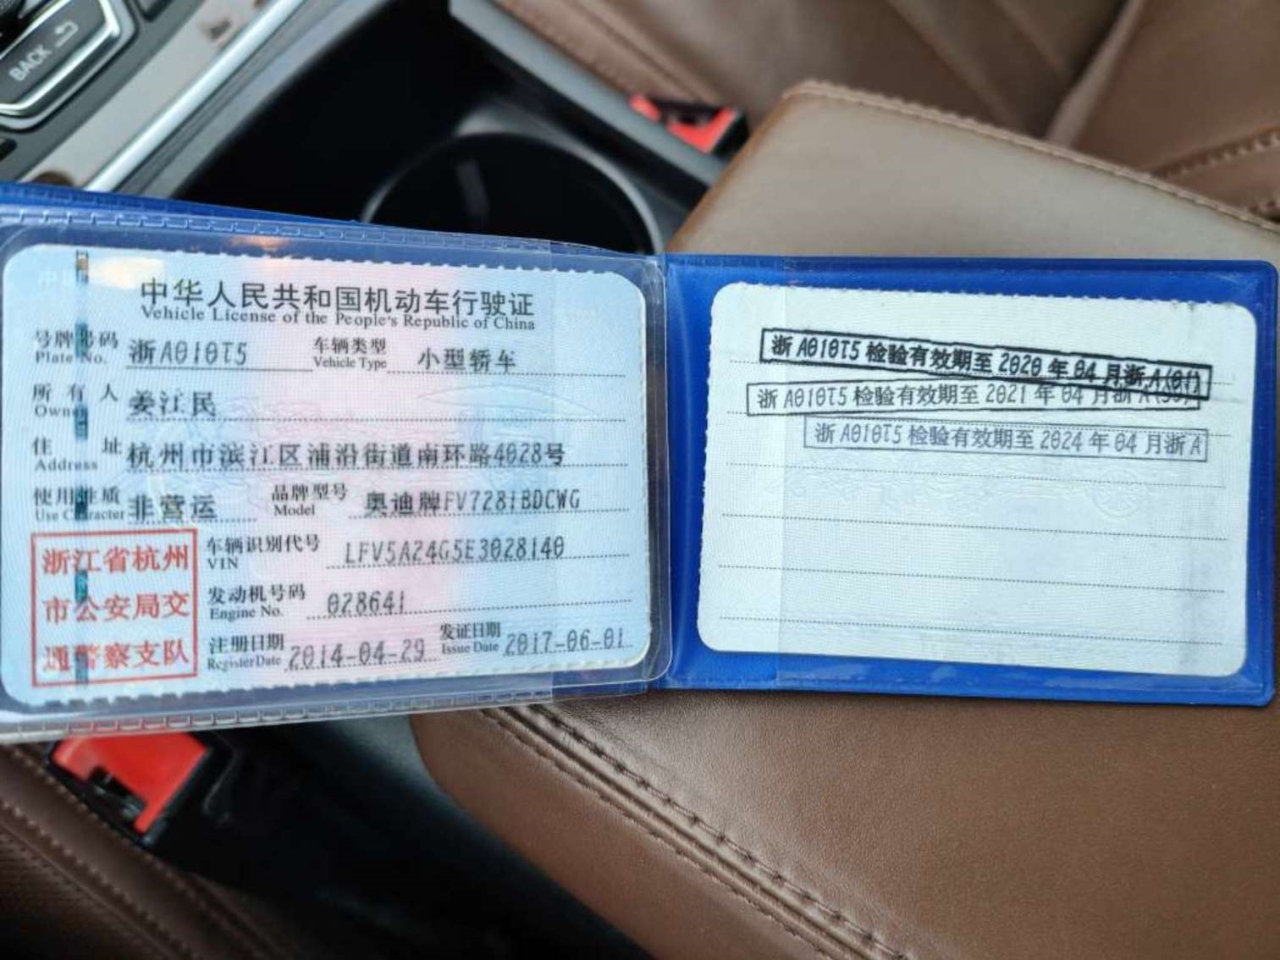 BACK
中华人民共和国机动车行驶证
Vehicle License of the People's Republic of China
号牌号码 浙A010T5 车辆类型 小型轿车
Plate No. Vehicle Type
所有人 姜江民
Owner
住址 杭州市滨江区浦沿街道南环路4028号
Address
使用性质 非营运 品牌型号 奥迪牌FV7281BDCWG
Use Character Model
浙江省杭州
市公安局交
通警察支队
车辆识别代号 LFV5A24G5E3028140
VIN
发动机号码 028641
Engine No.
注册日期 2014-04-29 发证日期 2017-06-01
Register Date Issue Date
浙A010T5检验有效期至2020年04月浙A(01)
浙A010T5检验有效期至2021年04月浙A
浙A010T5检验有效期至2024年04月浙A